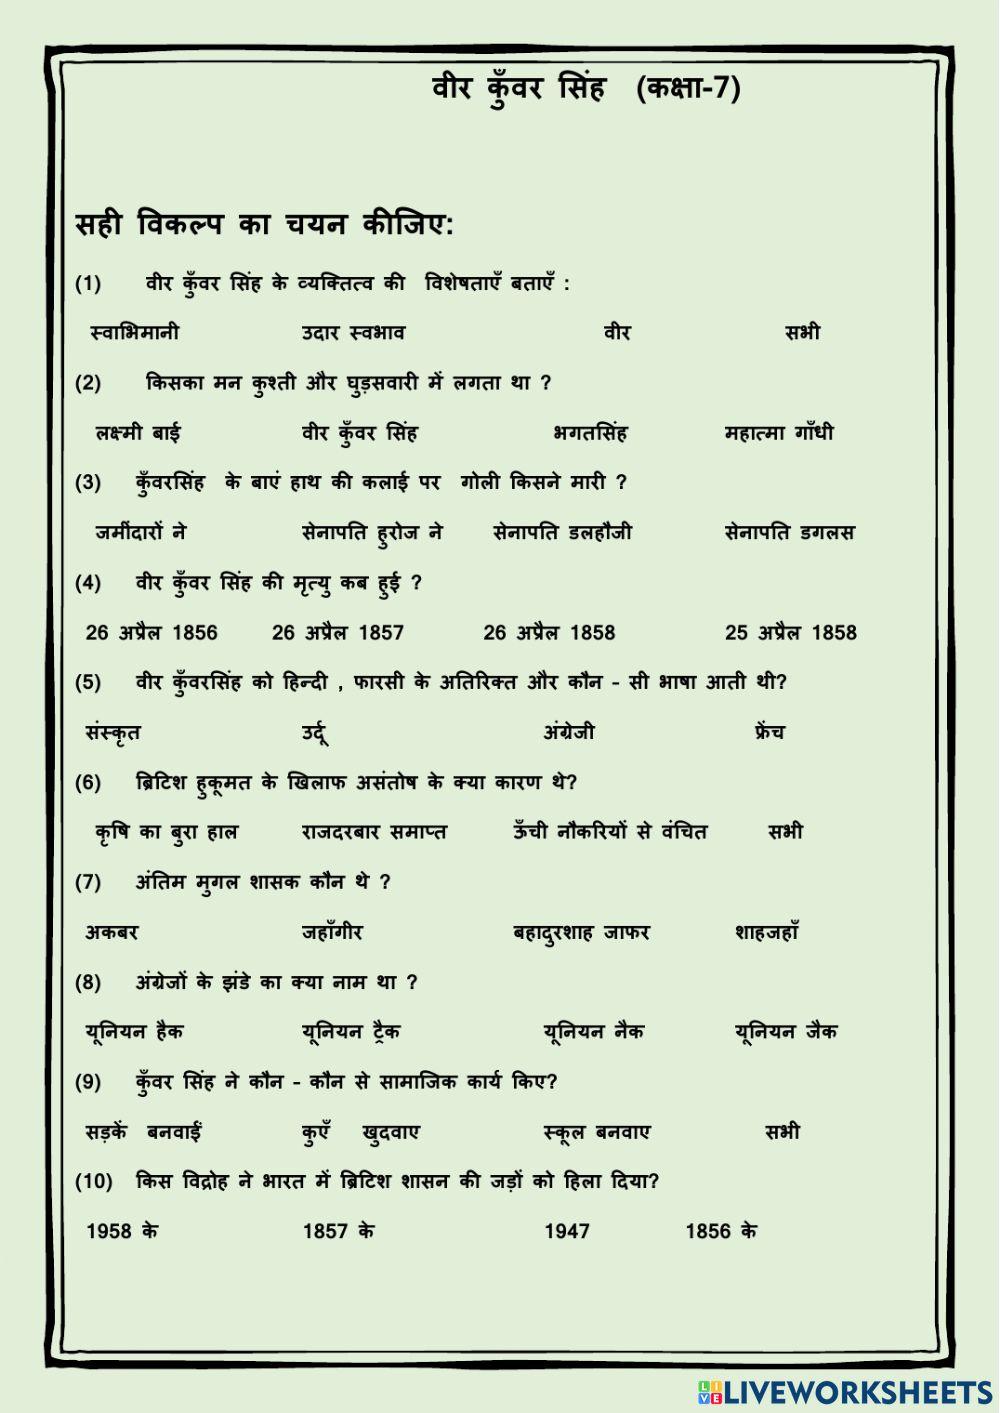 वीर कुँवर सिंह (कक्षा-7)
सही विकल्प का चयन कीजिए:
(1) वीर कुँवर सिंह के व्यक्तित्व की विशेषताएँ बताएँ :
स्वाभिमानी उदार स्वभाव वीर सभी
(2) किसका मन कुश्ती और घुड़सवारी में लगता था ?
लक्ष्मी बाई वीर कुँवर सिंह भगतसिंह महात्मा गाँधी
(3) कुँवरसिंह के बाएं हाथ की कलाई पर गोली किसने मारी ?
जमींदारों ने सेनापति हुरोज ने सेनापति डलहौजी सेनापति डगलस
(4) वीर कुँवर सिंह की मृत्यु कब हुई ?
26 अप्रैल 1856 26 अप्रैल 1857 26 अप्रैल 1858 25 अप्रैल 1858
(5) वीर कुँवरसिंह को हिन्दी , फारसी के अतिरिक्त और कौन – सी भाषा आती थी?
संस्कृत उर्दू अंग्रेजी फ्रेंच
(6) ब्रिटिश हुकूमत के खिलाफ असंतोष के क्या कारण थे?
कृषि का बुरा हाल राजदरबार समाप्त ऊँची नौकरियों से वंचित सभी
(7) अंतिम मुगल शासक कौन थे ?
अकबर जहाँगीर बहादुरशाह जाफर शाहजहाँ
(8) अंग्रेजों के झंडे का क्या नाम था ?
यूनियन हैक यूनियन ट्रैक यूनियन नैक यूनियन जैक
(9) कुँवर सिंह ने कौन – कौन से सामाजिक कार्य किए?
सड़कें बनवाईं कुएँ खुदवाए स्कूल बनवाए सभी
(10) किस विद्रोह ने भारत में ब्रिटिश शासन की जड़ों को हिला दिया?
1958 के 1857 के 1947 1856 के
LIVE LIVEWORKSHEETS